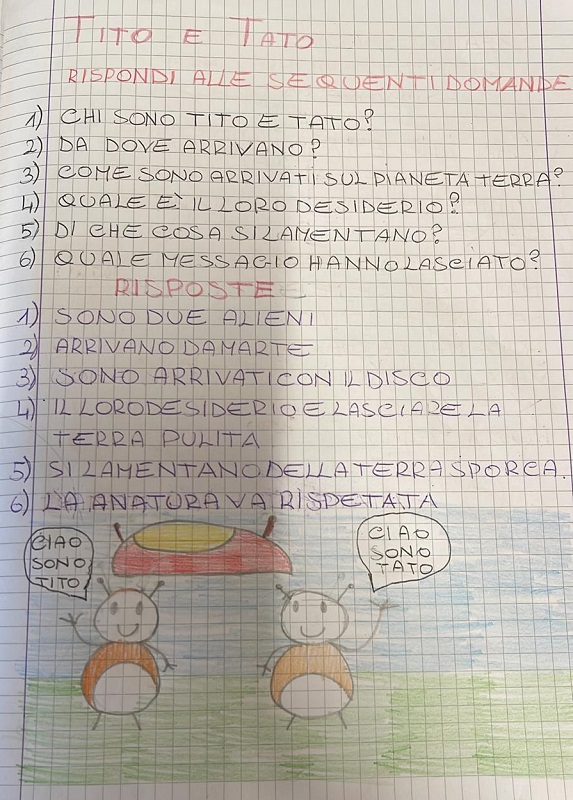 TITO E TATO
RISPONDI ALLE SEQUENTI DOMANDE
1) CHI SONO TITO E TATO?
2) DA DOVE ARRIVANO?
3) COME SONO ARRIVATI SUL PIANETA TERRA?
4) QUALE E' IL LORO DESIDERIO?
5) DI CHE COSA SI LAMENTANO?
6) QUALE MESSAGIO HANNO LASCIATO?
RISPOSTE
1) SONO DUE ALIENI
2) ARRIVANO DA MARTE
3) SONO ARRIVATI CON IL DISCO
4) IL LORO DESIDERIO E LASCIARE LA
TERRA PULITA
5) SI LAMENTANO DELLA TERRA SPORCA.
6) LA ANATURA VA RISPETATA
CIAO
SONO
TITO
CIAO
SONO
TATO